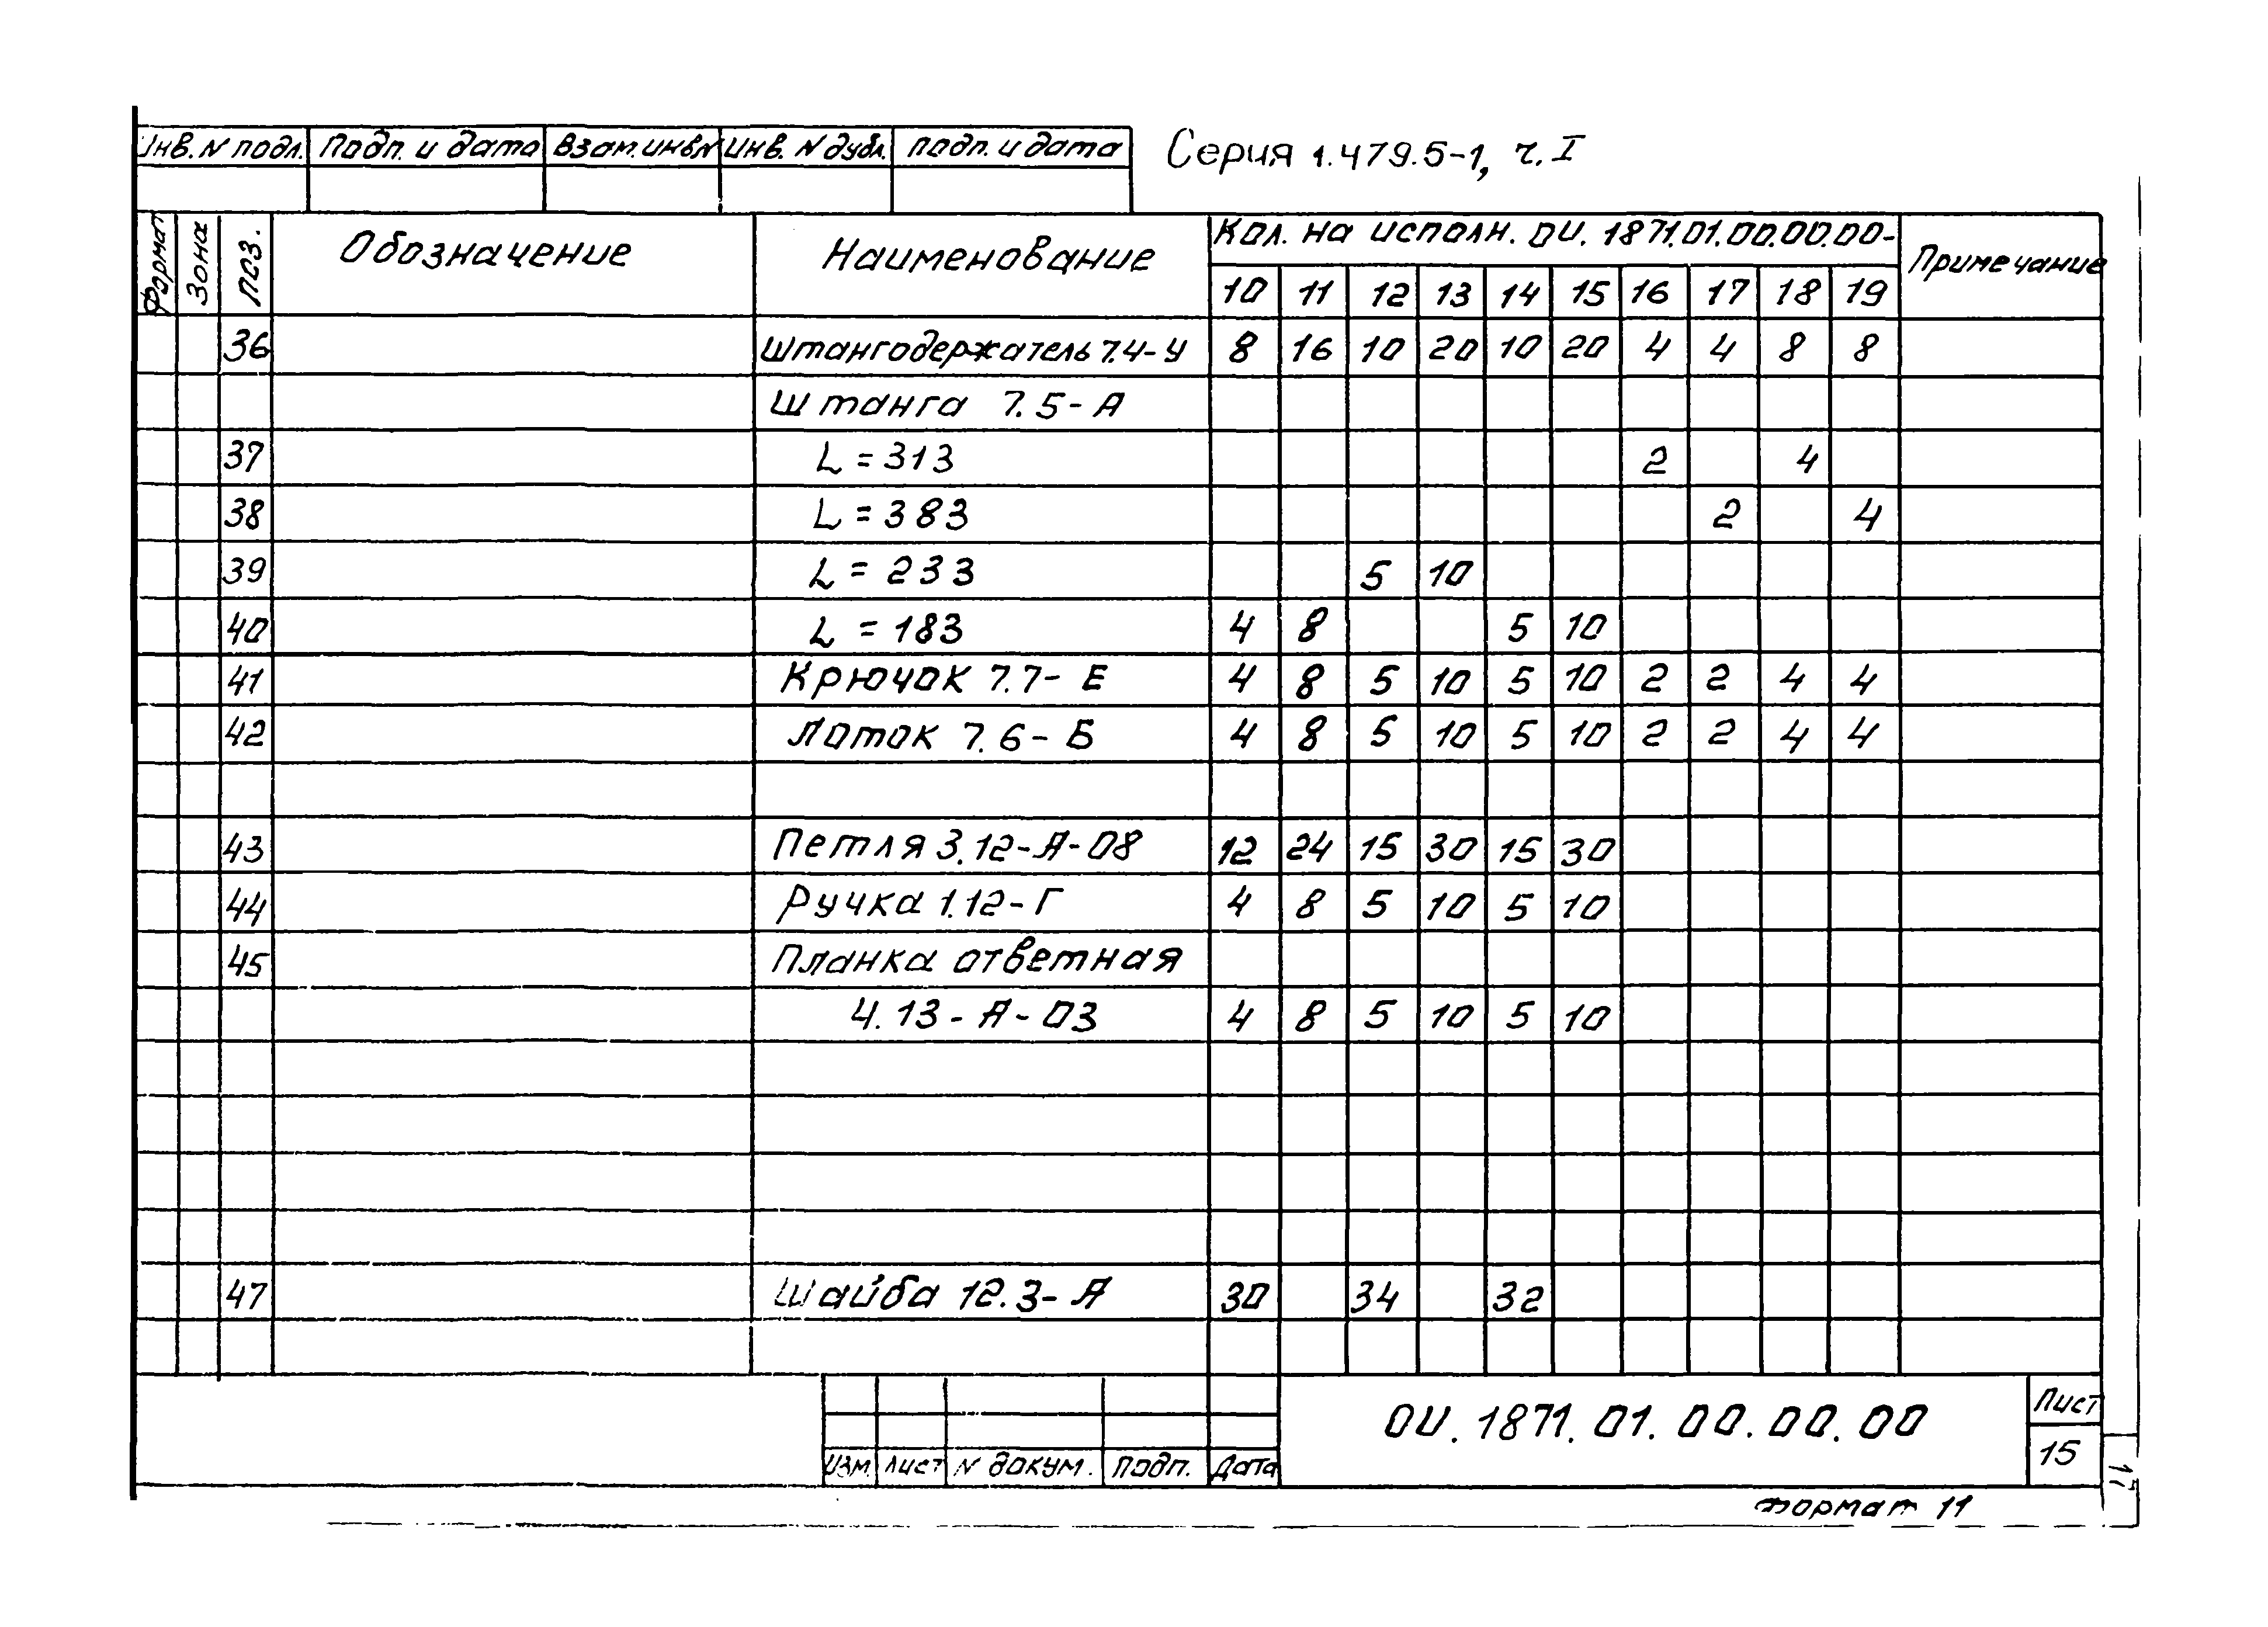 Инв. N подл. Подп. и дата Взам. инв N Инв. N дубл. Подп. и дата
Серия 1.479.5-1, ч. I
Формат Зона Поз. Обозначение Наименование Кол. на исполн. ОИ. 1871.01.00.00.00- Примечание
10 11 12 13 14 15 16 17 18 19
36 Штангодержатель 7.4-У 8 16 10 20 10 20 4 4 8 8
Штанга 7.5-А
37 L=313 2 4
38 L=383 2 4
39 L=233 5 10
40 L=183 4 8 5 10
41 Крючок 7.7-Е 4 8 5 10 5 10 2 2 4 4
42 Лоток 7.6-Б 4 8 5 10 5 10 2 2 4 4
43 Петля 3.12-А-08 12 24 15 30 15 30
44 Ручка 1.12-Г 4 8 5 10 5 10
45 Планка ответная
4.13-А-03 4 8 5 10 5 10
47 Шайба 12.3-А 30 34 32
Изм. Лист N докум. Подп. Дата
ОИ. 1871. 01. 00. 00. 00
Лист
15
17
Формат 11